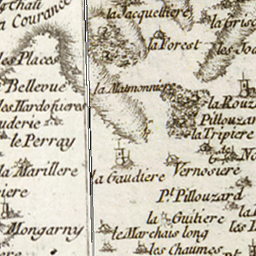 Chali
la Jacqueliere
n Courance
la Grisc
la Forest
es Places
les Jo
Bellevue
la Maimonniere
les Hardofieres
la Rouz
uderie
Pillouzar
la Tripiere
le Perray
No
la Marillere
Vernosiere
iere
la Gaudiere
Pt. Pillouzard
la Guitiere
Mongarny
le Marchais long
les
les Chaumes
Pt